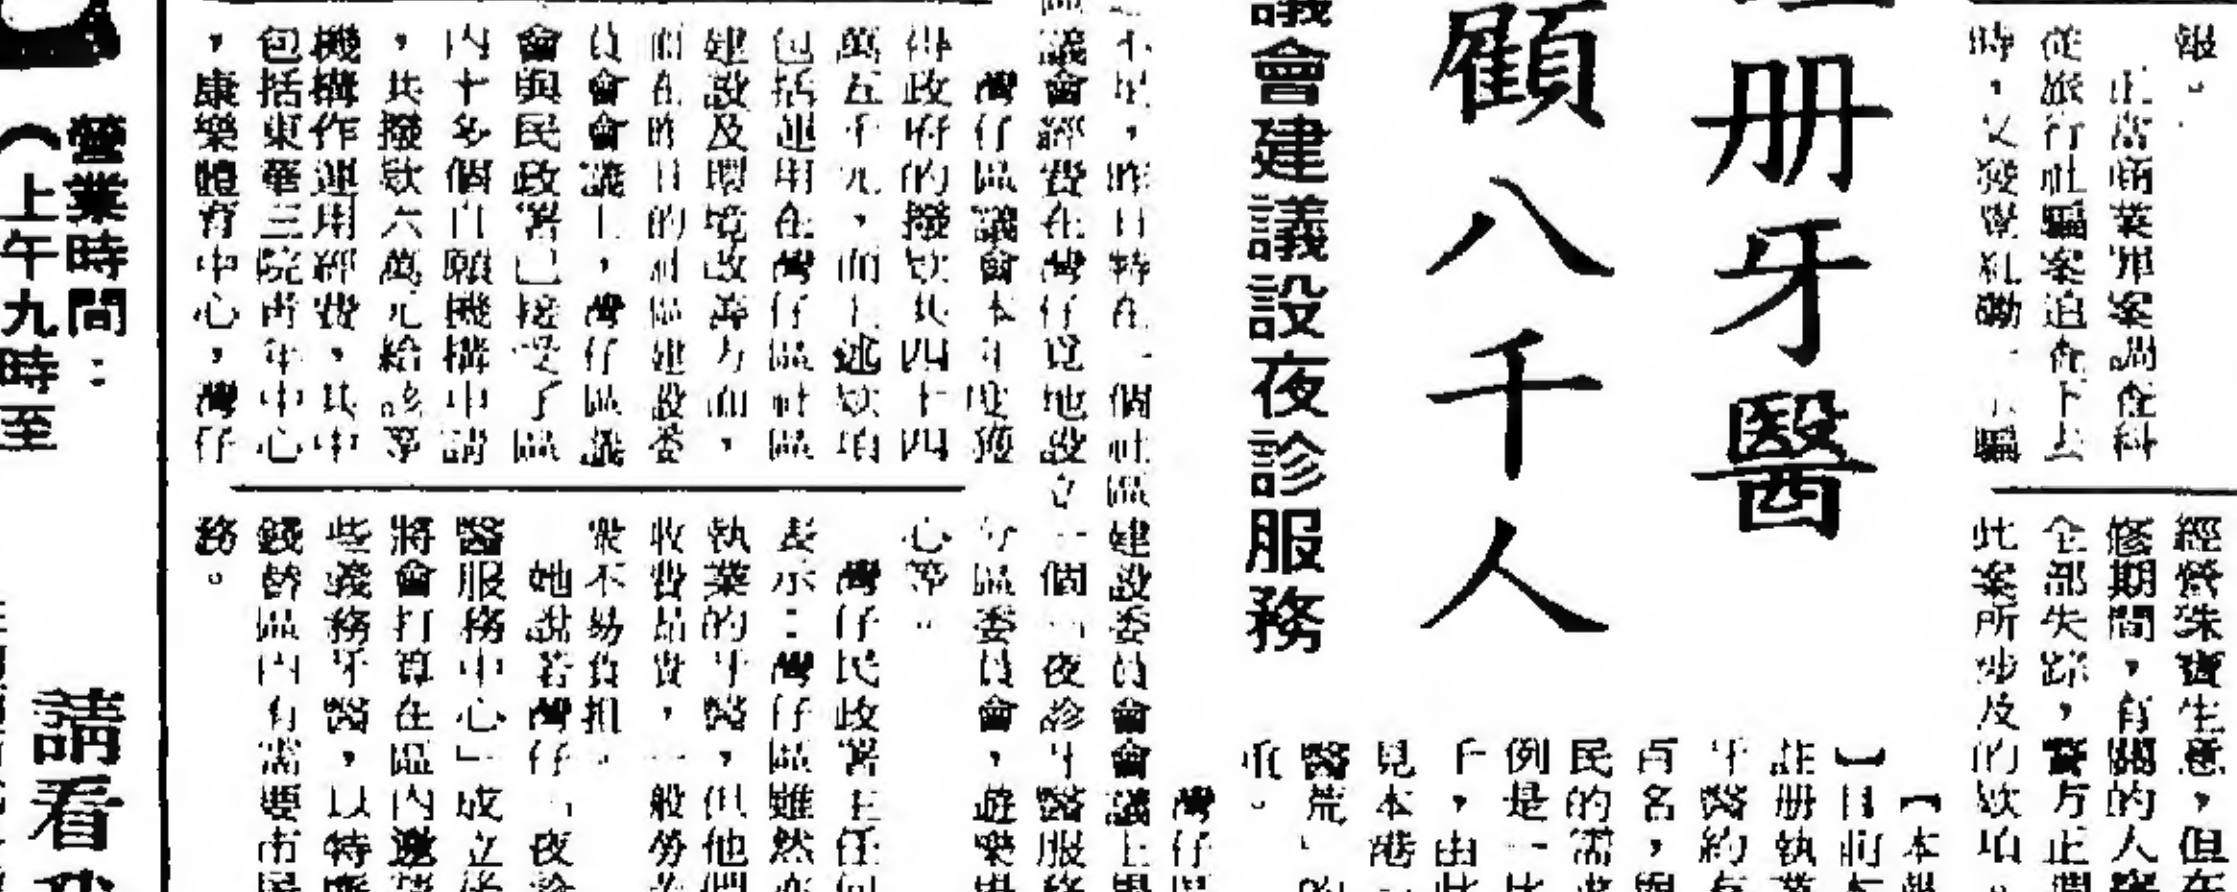 報。
正當商業罪案調查科
從旅行社騙案追查下去
時，又發覺
騙
經營珠寶生意，但在
修期間，有關的人
全部失踪，警方正調
此案所涉及的欵項。
册牙醫
顧八千人
議會建議設夜診服務
【本報
】目前本
註册執業
牙醫約有
百名，與
民的需求
例是一比
千，由此
見本港
醫荒」的
重。
灣仔區
不足，昨日特在一個社區建設委員會會議上
區議會經費在灣仔覓地設立一個「夜診牙醫服務
灣仔區議會本年度獲
得政府的撥欵共四十四
萬五千元，而上述欵項
包括運用在灣仔區社區
建設及環境改善方面，
而在昨日的社區建設委
員會會議上，灣仔區議
會與民政署已接受了區
內十多個自願機構申請
，共撥欵六萬元給該等
機構作運用經費，其中
包括東華三院青年中心
，康樂體育中心，灣仔
分區委員會，遊樂場
心等。
灣仔民政署主任何
表示：灣仔區雖然亦
執業的牙醫，但他們
收費昂貴，一般勞苦
衆不易負担。
她說若灣仔「夜診
醫服務中心」成立後
將會打算在區內邀請
些義務牙醫，以特廉
錢替區內有需要市民
務。
營業時間：
（上午九時至
請看我